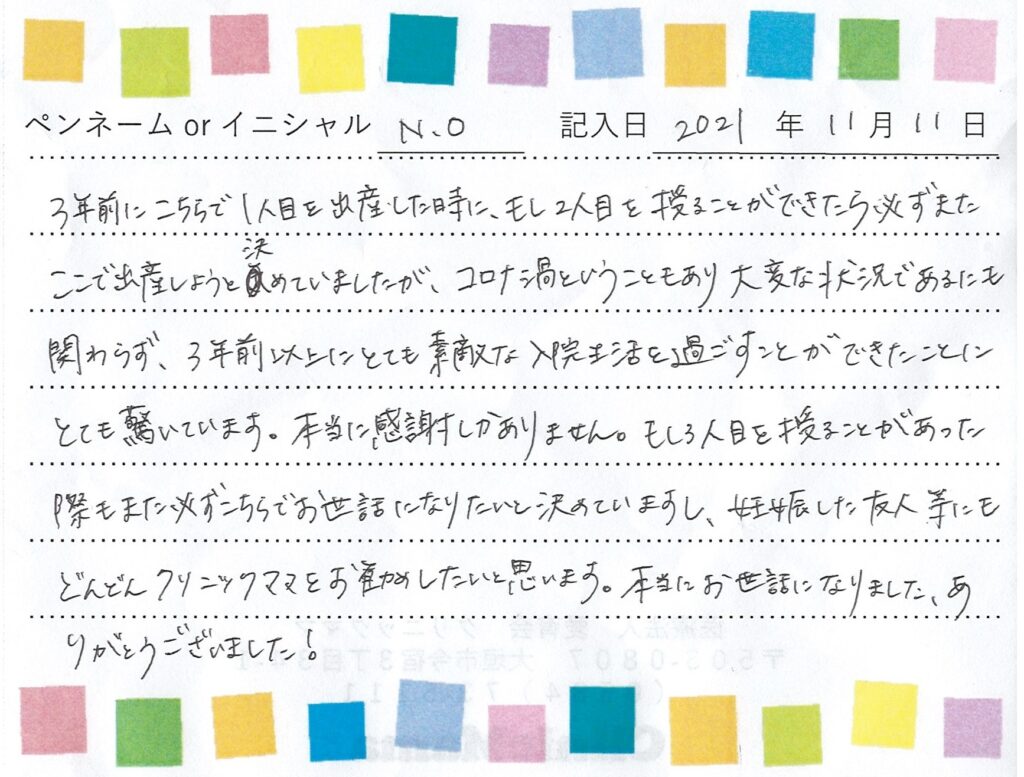 ペンネーム or イニシャル N.O 記入日 2021 年 11 月 11 日
3年前にこちらで1人目を出産した時に、もし2人目を授ることができたら必ずまた
ここで出産しようと決めていましたが、コロナ渦ということもあり大変な状況であるにも
関わらず、3年前以上にとても素敵な入院生活を過ごすことができたことに
とても驚いています。本当に感謝しかありません。もし3人目を授ることがあった
際もまた必ずこちらでお世話になりたいと決めていますし、妊娠した友人等にも
どんどんクリニックママをお勧めしたいと思います。本当にお世話になりました、あ
りがとうございました!
医療法人 クリニックママ
〒503-0807 大垣市今宿3丁目34-1